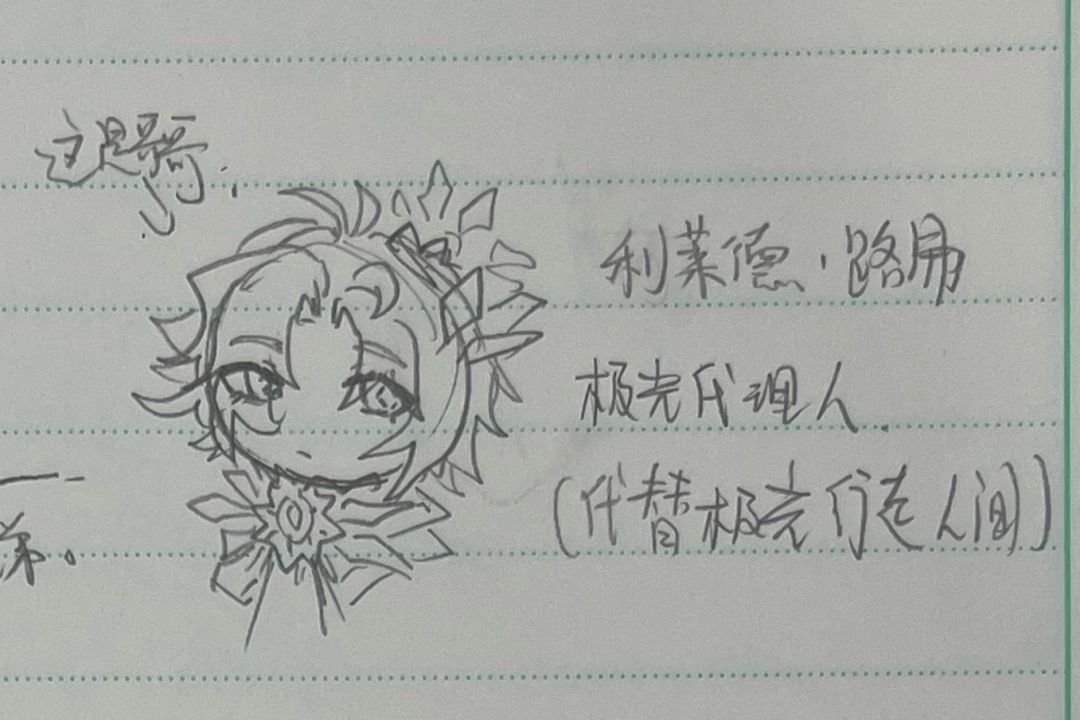 这是哥哥.
利莱德·路易
极光代理人.
(代替极光行走人间)
弟。